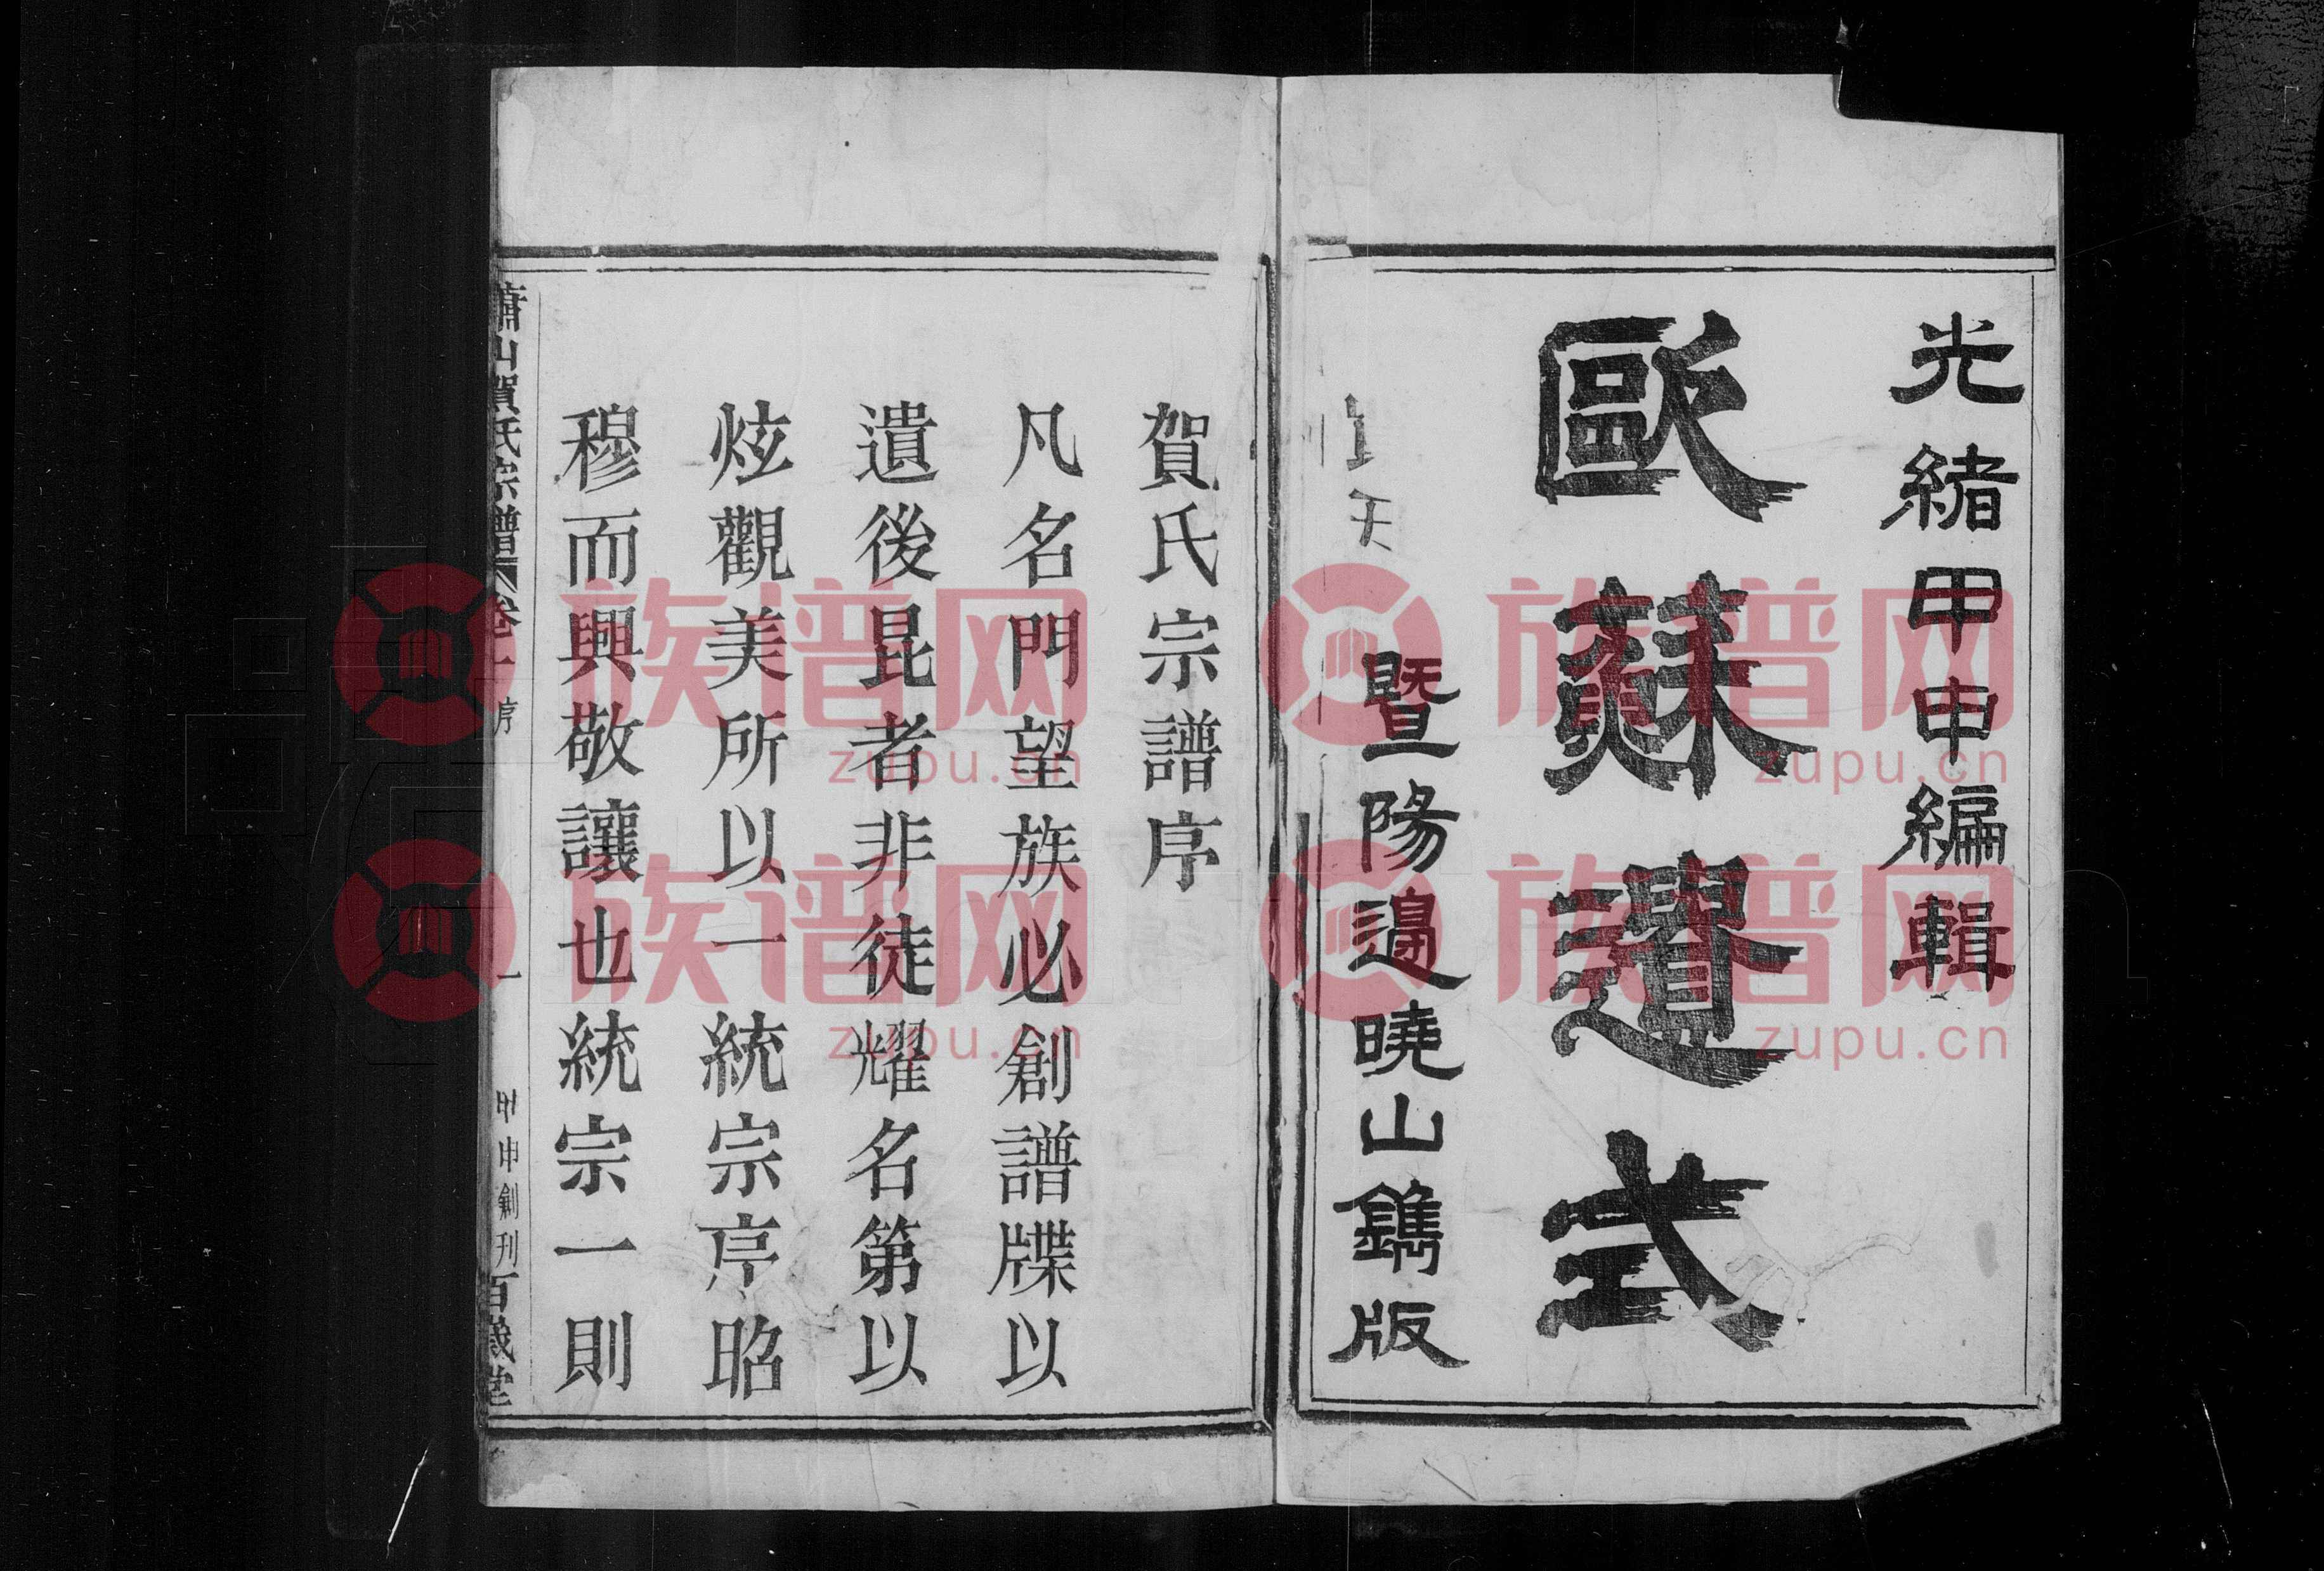 光緒甲申編輯
歐蘇遺式
暨陽邊曉山鐫版
賀氏宗譜序
凡名門望族必創譜牒以
遺後昆者非徒耀名第以
炫觀美所以一統宗序昭
穆而興敬讓也統宗一則
蕭山賀氏宗譜 卷一 序 一 甲申創刊 百歲堂
族谱网
zupu.cn
族谱网
zupu.cn
族谱网
zupu.cn
族谱网
zupu.cn